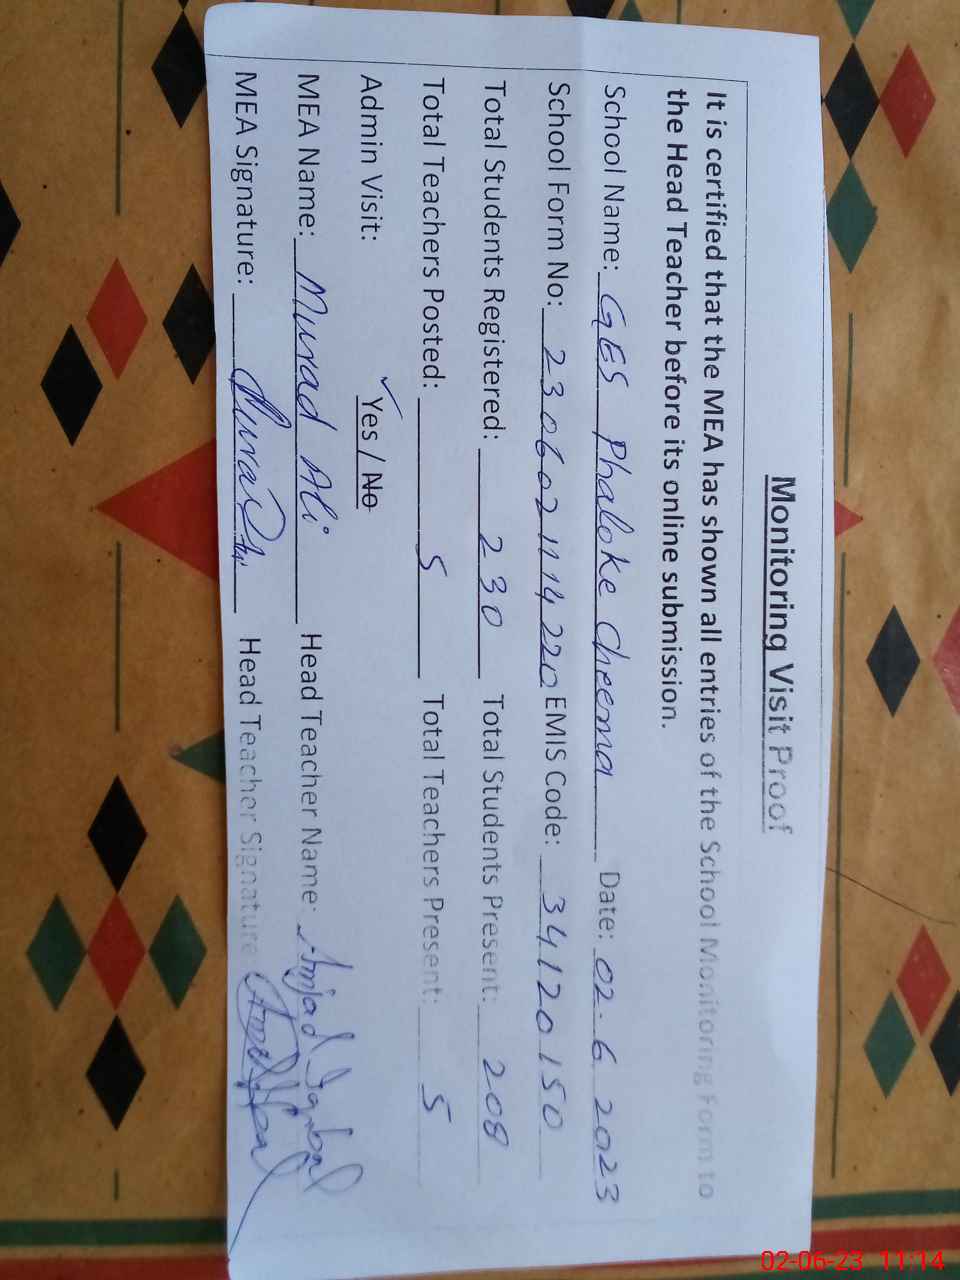 Monitoring Visit Proof
It is certified that the MEA has shown all entries of the School Monitoring Form to
the Head Teacher before its online submission.
School Name: GES Phaloke Cheema Date: 02.6.2023
School Form No: 23060211114220 EMIS Code: 34120150
Total Students Registered: 230 Total Students Present: 208
Total Teachers Posted: 5 Total Teachers Present: 5
Admin Visit: ✓ Yes / No
MEA Name: Murad Ali Head Teacher Name: Amjad Iqbal
MEA Signature: Head Teacher Signature:
02-06-23 11:14